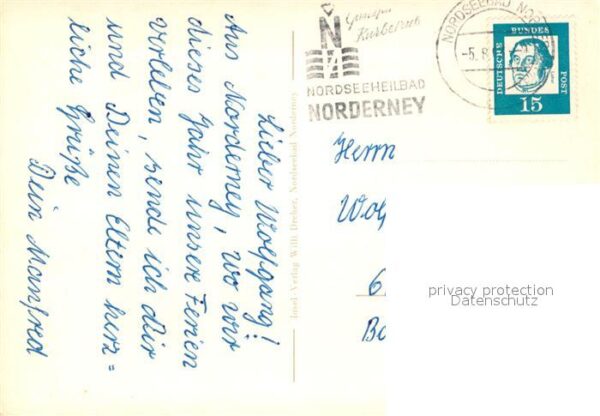 Lieber Wolfgang!
Aus Norderney, wo wir
dieses Jahr unsere Ferien
verleben, sende ich dir
und Deinen Eltern herz=
liche Grüße
Dein Manfred
Insel-Verlag Willi Dreker, Nordseebad Norderney
N
Kurbetrieb
NORDSEEHEILBAD
NORDERNEY
NORDSEEBAD NOR
-5.8.
DEUTSCHE
BUNDES
POST
15
Herrn
Wolf
6
Bo
privacy protection
Datenschutz